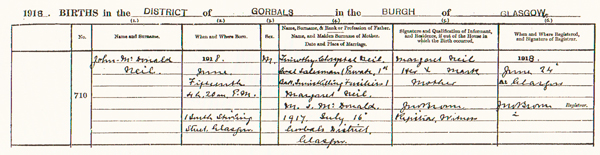 1918. BIRTHS in the DISTRICT of GORBALS in the BURGH of GLASGOW
(1.) (2.) (3.) (4.) (5.) (6.)
No. Name and Surname. When and Where Born. Sex. Name, Surname, & Rank or Profession of Father. Name, and Maiden Surname of Mother. Date and Place of Marriage. Signature and Qualification of Informant, and Residence, if out of the House in which the Birth occurred. When and Where Registered, and Signature of Registrar.
710
John McDonald
Neil.
1918.
June
Fifteenth
4 h. 20 m. P.M.
1 South Stirling
Street, Glasgow
M.
Timothy Neil,
Coal Salesman (Private, 1st
Batt. Inniskilling Fusiliers)
Margaret Neil
M. S. McDonald.
1917. July 16
Gorbals District,
Glasgow.
Margaret Neil
Her X Mark
Mother
Jno Broom
Registrar, Witness
1918.
June 24
At Glasgow
Jno Broom
Registrar.